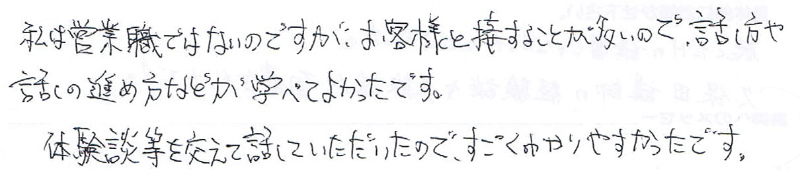 私は営業職ではないのですが、お客様と接することが多いので、話し方や
話しの進め方などが学べてよかったです。
体験談等を交えて話していただいたので、すごくわかりやすかったです。